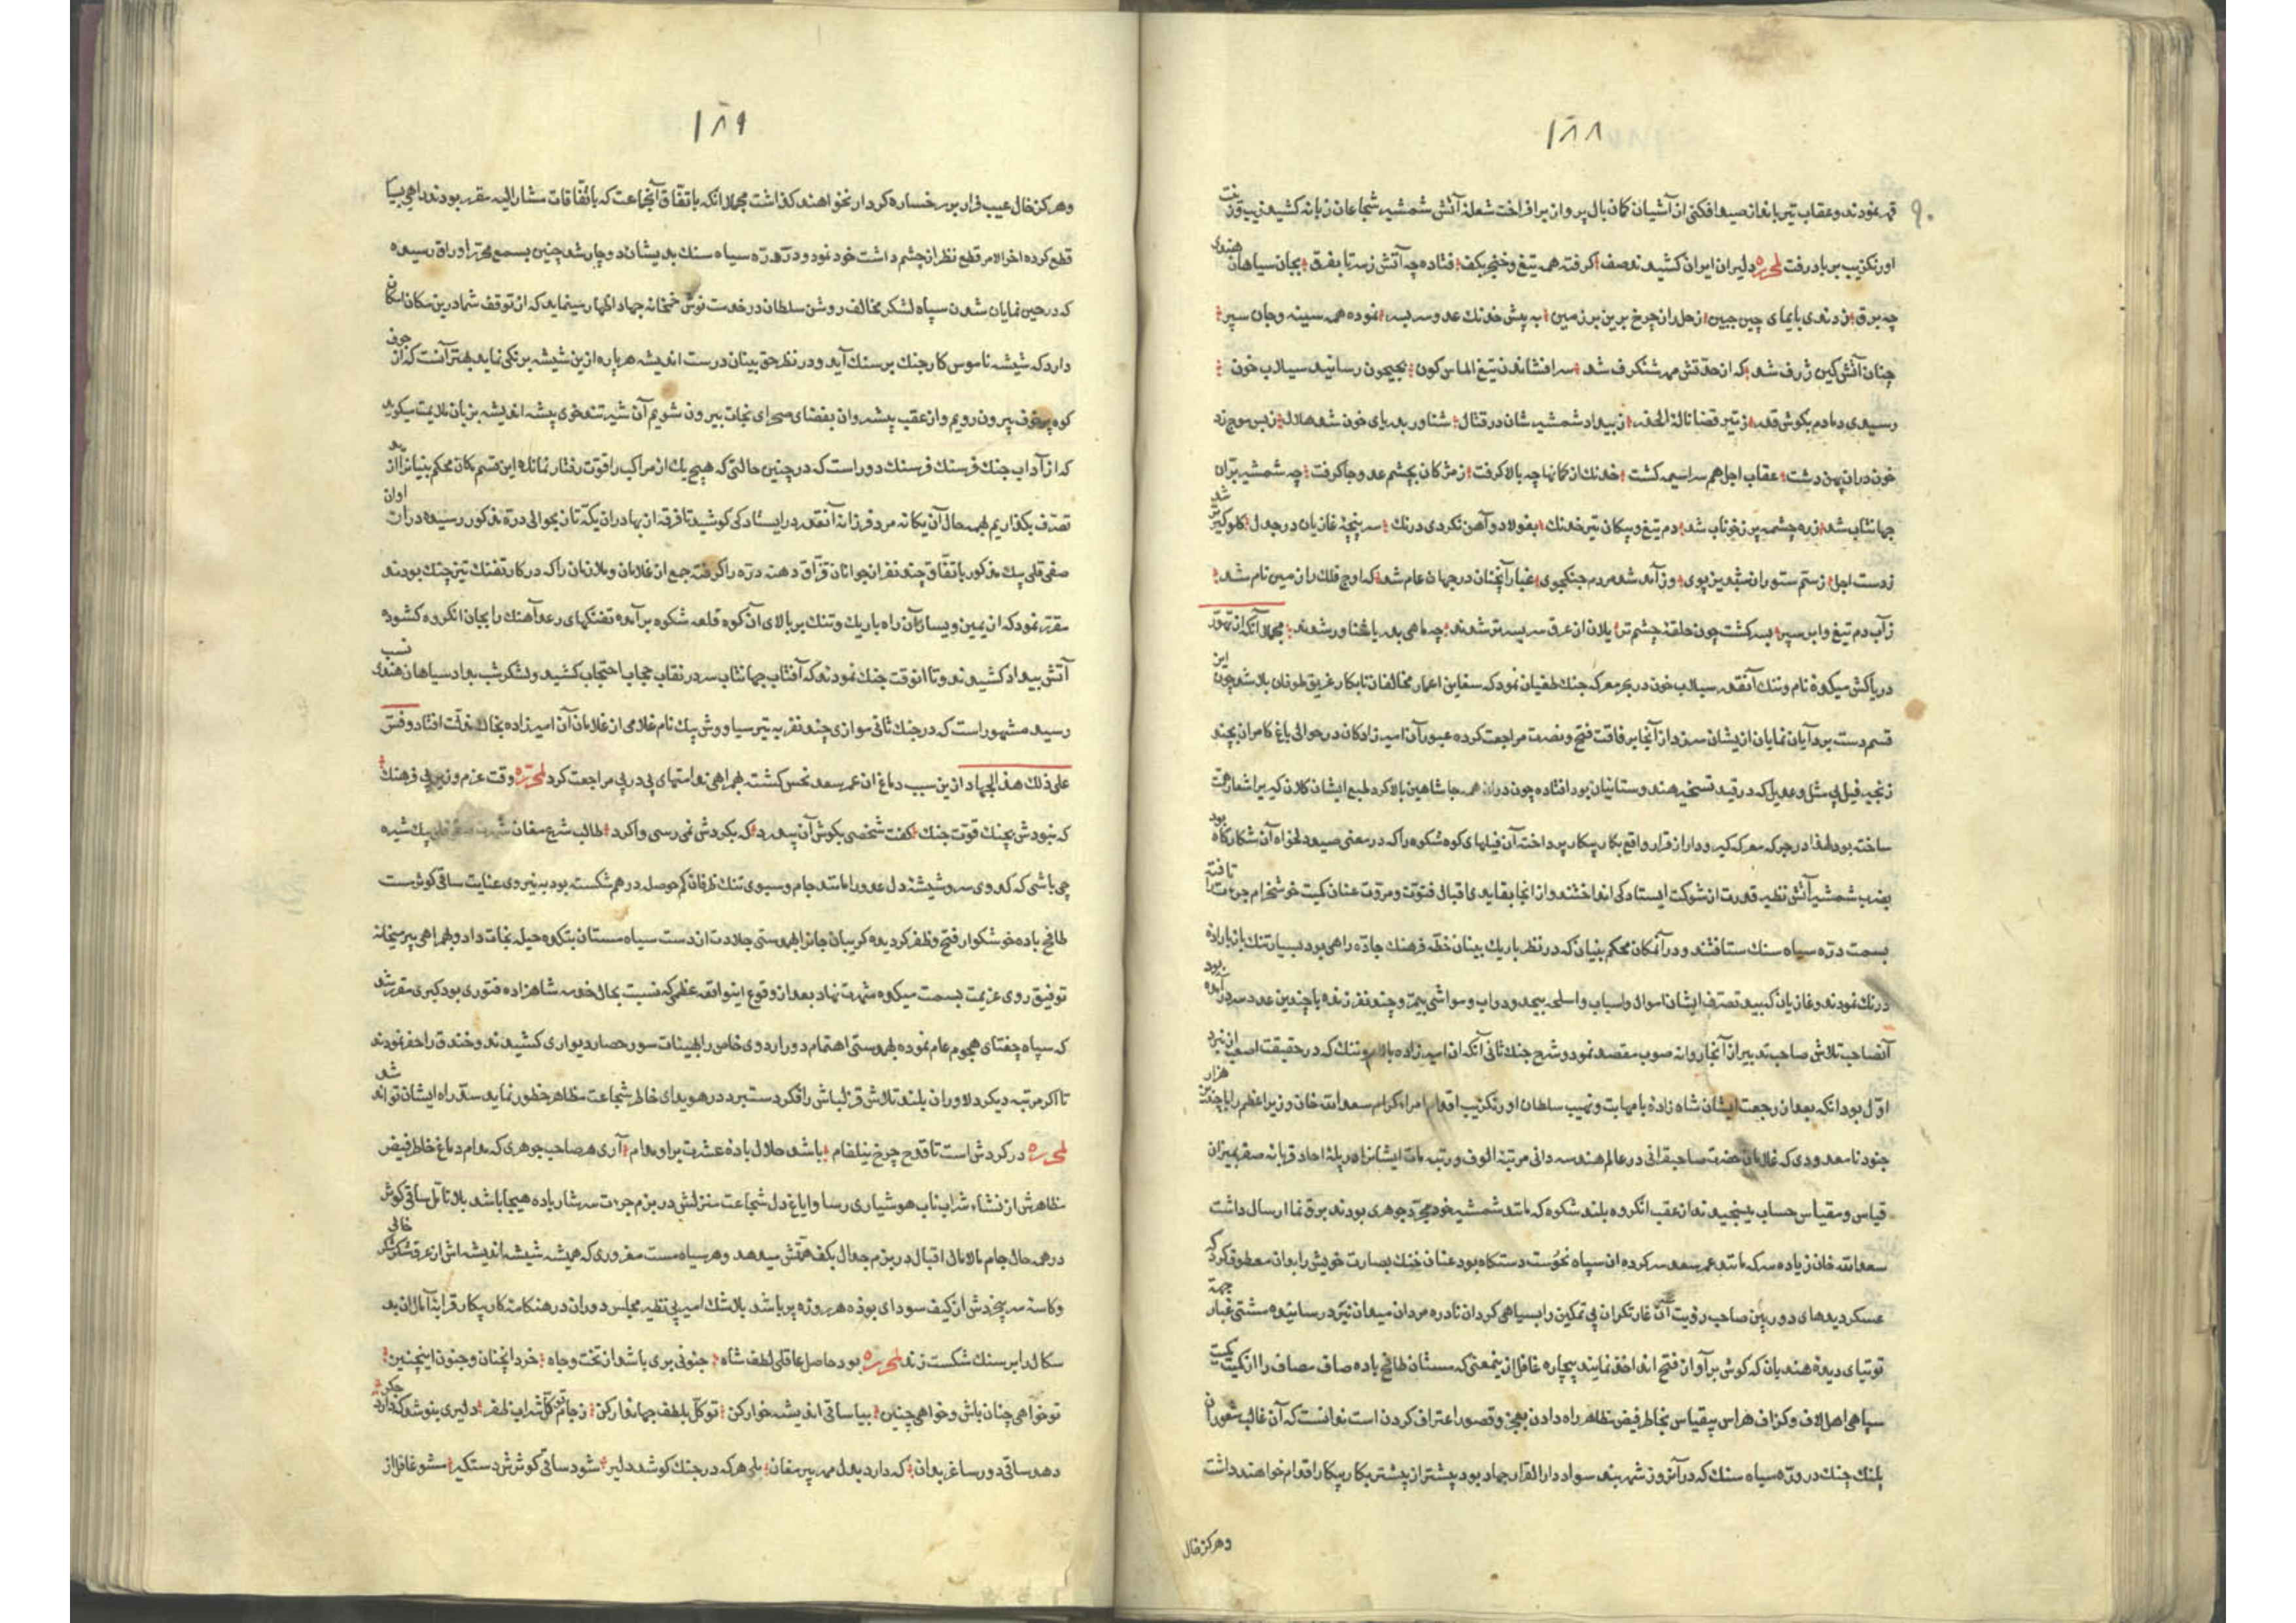 ۱۸۸
۹۰
قمر نمودند و عقاب تیر بانداز صید افکنی از آشیان کمان بال پرواز برافراخت شعلهٔ آتش شمشیر شجاعان زبانه کشید زیب و زینت
اورنکزیب بر باد رفت لمحرره دلیران ایران کشیدند صف کرفته همه تیغ و خنجر بکف فتاده چه آتش زسر تا بفرق بجان سیاهان هندی
چه برق زدندی بایمای چین جبین زحل را ز چرخ برین بر زمین به پیش خدنک عدو سر بسر نموده همه سینه و جان سپر
چنان آتش کین ژرف شد که از حدتش مهر شنکرف شد سرافشاندن تیغ الماس کون بجیحون رسانید سیلاب خون
رسیدی دمادم بکوش قدر ز تیر قضا نالهٔ الحذر ز بیداد شمشیر شان در قتال شناور بدریای خون شد هلال ز بس موج زد
خون دران پهن دشت عقاب اجل هم سراسیمه کشت خدنک از کمانها چه بالا کرفت ز مژکان بچشم عدو جا کرفت چه شمشیر بران
جهانتاب شد زره چشمه پر ز خوناب شد دم تیغ و پیکان تیر خدنک بفولاد و آهن نکردی درنک سر پنجهٔ غازیان در جدل کلوکیر شد
ز دست اجل ز ستم ستوران پوی وز آمد شد مردم جنکجوی غبار آنچنان در جهان عام شد که اوج فلک را زمین نام شد
ز آب دم تیغ و ابر سپر بسر کشت چون حلقهٔ چشم تر یلان از عرق سر بسر تر شدند چه ماهی بدریا شناور شدند مجملا آنکه از تهور
دریاکش میکدهٔ نام و ننک آنقدر سیلاب خون در بحر معرکه جنک طغیان نمود که سفاین اعمار مخالفان نابکار غریق طوفان بلا شد چون این
قسم دست برد آیان نمایان ازیشان سرزد از آنجا برفاقت فتح و نصرت مراجعت کرده عبور آن امیرزادکان در حوالی باغ کامران بچند
زنجیر فیل بی مثل و عدیل که در قید تسخیر هندوستانیان بود افتاده چون دران همه جا شاهین بالاکرد طبع ایشان کلان کیر را شعار همت
ساخته بود لهذا در جرکه معرکه کیر و دار از قرار واقع بکار پیکار پرداخته آن فیلهای کوه شکوه را که در معنی صید دلخواه آن شکارکاه بود
بضرب شمشیر آتش نظیر قدرت از شوکت ایستادکی انداختند و از انجا بقایدی اقبالی فتوت و مروت عنان کمیت خوشخرام جرءت را تافته
بسمت دره سیاه سنک ستافتند و در آنمکان محکم بنیان که در نظر باریک بینان خطه فرهنک جاده راهی بود بسیار تنک
درنک نمودند و غازیان که بید تصرف ایشان اموال و اسباب و اسلحه بیحد و دواب و مواشی بیمر و چند نفر زنده با چندین عدد سر در آمده بود
آنصاحب تلاش صاحب تدبیر از آنجا روانه صوب مقصد نمود و شرح جنک ثانی آنکه ان امیرزاده بانام و ننک که در حقیقت اصعب از نبرد
اول بود آنکه بعد از رجعت ایشان شاه زادهٔ بامهابت و نهیب سلطان اورنکزیب اقدام امراء کرام سعدالله خان وزیر اعظم را با چندین هزار
جنود نامعدودی که غلامان حضرت صاحبقرانی در عالم هندسه دانی مرتبهٔ الوف و رتبه مآت ایشانرا در پلهٔ احاد
قیاس و مقیاس حساب میسنجیدند از عقب انکروه بلند شکوه که مانند شمشیر خود مجرد جوهری بودند برق نما ارسال داشت
سعدالله خان زیاده سر که مانند عمر سعد سرکرده ان سپاه نحوست دستکاه بود عنان خنک بصارت خویش را بدان معطوف کرد که
عسکر دیدهای دوربین صاحب رؤیت آن غارتکران بی تمکین را بسیاهی کردان نادره مردان میدان نبرد رسانیده مشتی غبار جهة
توتیای دیدهٔ هندیان که کوش برآواز فتح اند اخذ نمایند بیچاره غافل ازینمعنی که مستان طافح باده صاف مصاف را از کمیت
سپاهی اهل لاف و کزاف هراس بیقیاس بخاطر فیض مظاهر راه دادن بعجز و قصور اعتراف کردن است ندانست که آن غالب شعوران
پلنک چنک در درهٔ سیاه سنک که در آنروز شهر بند سواد دارالقرار جهاد بود پیشتر از پیشتر بکار پیکار اقدام خواهند داشت
وهرکز خال
۱۸۹
وهرکز خال عیب فرار بر رخساره کردار نخواهند کذاشت مجملا انکه باتفاق آنجماعت که باتفاقات مشارالیه مقرر بودند راهی بسیار
قطع کرده اخرالامر قطع نظر از چشم داشت خود نمود و در دره سیاه سنک بدیشان دوچار شد چنین بسمع محرر اوراق رسیده
که در حین نمایان شدن سپاه لشکر مخالف روشن سلطان در خدمت نوش خمخانه جهاد اظهار مینماید که از توقف شما درین مکان امکان
دارد که شیشه ناموس کار جنک بر سنک آید و در نظر حق بینان درست اندیشه هر پاره ازین شیشه برنکی نماید بهتر آنست که از جوف
کوه پرخوف بیرون رویم و از عقب بیشه و ان بفضای صحرای نجات بیرون شویم آن شیر تندخوی بیشه اندیشه بزبان ملایمت میکوید
که از آداب جنک فرسنک فرسنک دور است که در چنین حالتی که هیچ یک از مراکب را قوت رفتار نمانده این قسم مکان محکم بنیانرا از ید
تصرف بکذاریم بهمه حال آن یکانه مرد فرزانه آنقدر در ایستادکی کوشید تا فرقه از بهادران یکه تاز بحوالی دره مذکور رسیده دران اوان
صفی قلی بیک مذکور باتفاق چند نفر از جوانان قزاق دهنه دره را کرفته جمع از غلامان و ملازمان را که در کار تفنک تیز چنک بودند
مقرر نمود که از یمین و یسار آن راه باریک و تنک بر بالای آن کوه قلعه شکوه برآمده تفنکهای رعد آهنک را بجان انکروه کشوده
آتش بیداد کشیدند و تا انوقت جنک نمودند که آفتاب جهانتاب سر در نقاب حجاب احتجاب کشید و لشکر شب بمداد سیاهان هندی نسب
رسید مشهور است که در جنک ثانی موازی چند نفر به تیر سیاووش بیک نام غلامی از غلامان آن امیرزاده بخاک مذلت افتاد وقس
علی ذلک هذا الجهاد ازین سبب دماغ ان عمر سعد نحس کشته بهمراهی ندامتهای پی در پی مراجعت کرد لمحرره وقت عزم وزیر بی فرهنک
که نبودش بچنک قوت جنک کفت شخصی بکوش آن بیدرد که بکردش نمی رسی واکرد طالب شرع مغان بیک شیره
چی باشی که کدوی سر و شیشهٔ دل عدو را مانند جام و سبوی تنک ظرفان کم حوصله درهم شکسته بود به نیروی عنایت ساقی کوثر مست
طافح باده خوشکوار فتح و ظفر کردیده کریبان جانرا بهمدستی جلادت از دست سیاه مستان بتکده حیله نجات داد و بهمراهی پیر میخانه
توفیق روی عزیمت بسمت میکده شهرت نهاد بعد از وقوع اینواقعه عظمی که نسبت بحال خود شاهزاده فتوری بود کبری مقرر شد
که سپاه جغتای هجوم عام نموده بهمدستی اهتمام دور اردوی خاص را بهیئات سور حصار دیواری کشیدند و خندق را حفر نمودند
تا اکر مرتبه دیکر دلاوران بلند تلاش قزلباش را فکر دستبرد در هویدای خاطر شجاعت مظاهر خطور نماید سد راه ایشان تواند شد
لمحرره در کردش است تا قدح چرخ نیلفام باشد حلال باده عشرت بر او مدام آری هر صاحب جوهری که مدام دماغ خاطر فیض
مظاهرش از نشاء شراب ناب هوشیاری رسا و ایاغ دل شجاعت منزلش در بزم جرءت سرشار باده هیجا باشد بلا تامل ساقی کوثر
در همه حال جام مالامال اقبال در بزم جدال بکف همتش میدهد و هر سیاه مست مغروری که همیشه شیشه اندیشه اش از عرق شکر شکر خالی
و کاسه سر بیخردش از کیف سودای بوده هر روزه پر باشد بلاشک امیر بی نظیر مجلس دوران در هنکامه کار پیکار قرابهٔ آمال ان بد
سکال را بر سنک شکست زند لمحرره بود حاصل عاقلی لطف شاه جنونی بری باشد از تخت و جاه خرد آنچنان و جنون اینچنین
تو خواهی چنان باش و خواهی چنین بیا ساقی اندیشه خوار کن توکل بلطف جهاندار کن ز جام توکل شراب ظفر دلیری بنوشد که دارد جکر
دهد ساقی دور ساغر بدان که دارد بدل مهر پیر مغان بلی هر که در جنک کوشد دلیر شود ساقی کوثرش دستکیر مشو غافل از